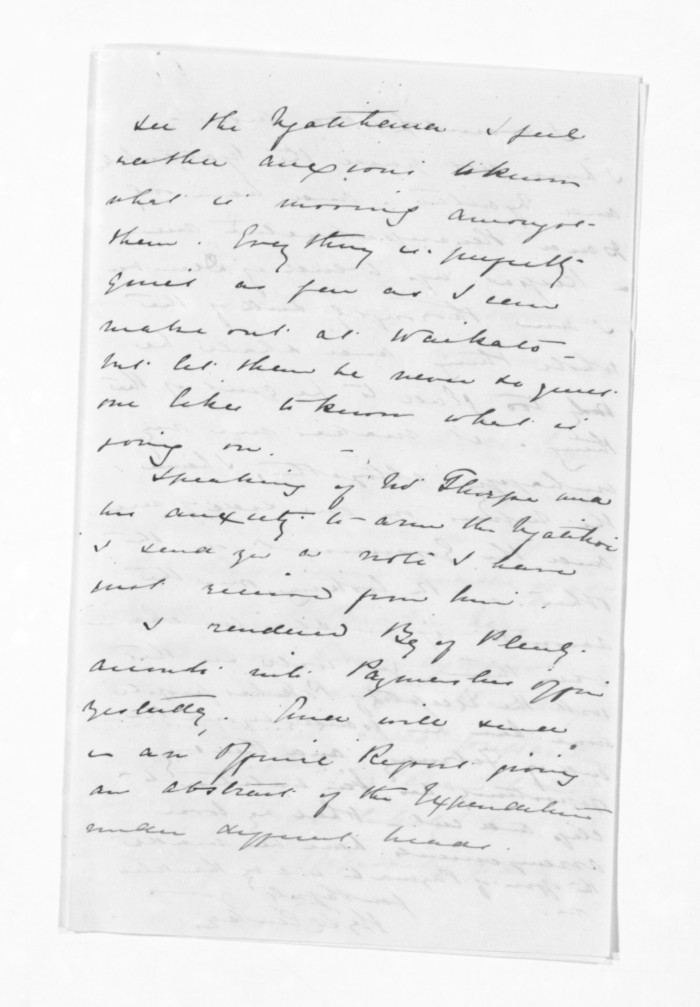 see the Ngatihaua I feel
rather anxious to know
what is moving amongst
them. Everything is perfectly
quiet as far as I can
make out at Waikato -
but let them be never so quiet
one likes to know what is
going on. -
Speaking of Mr Thorpe and
his anxiety to arm the
I send you a note I have
just received from him.
I rendered Bay of Plenty
accounts into Paymasters Office
yesterday. And will send
in an Official Report giving
an abstract of the Expenditure
under different heads.